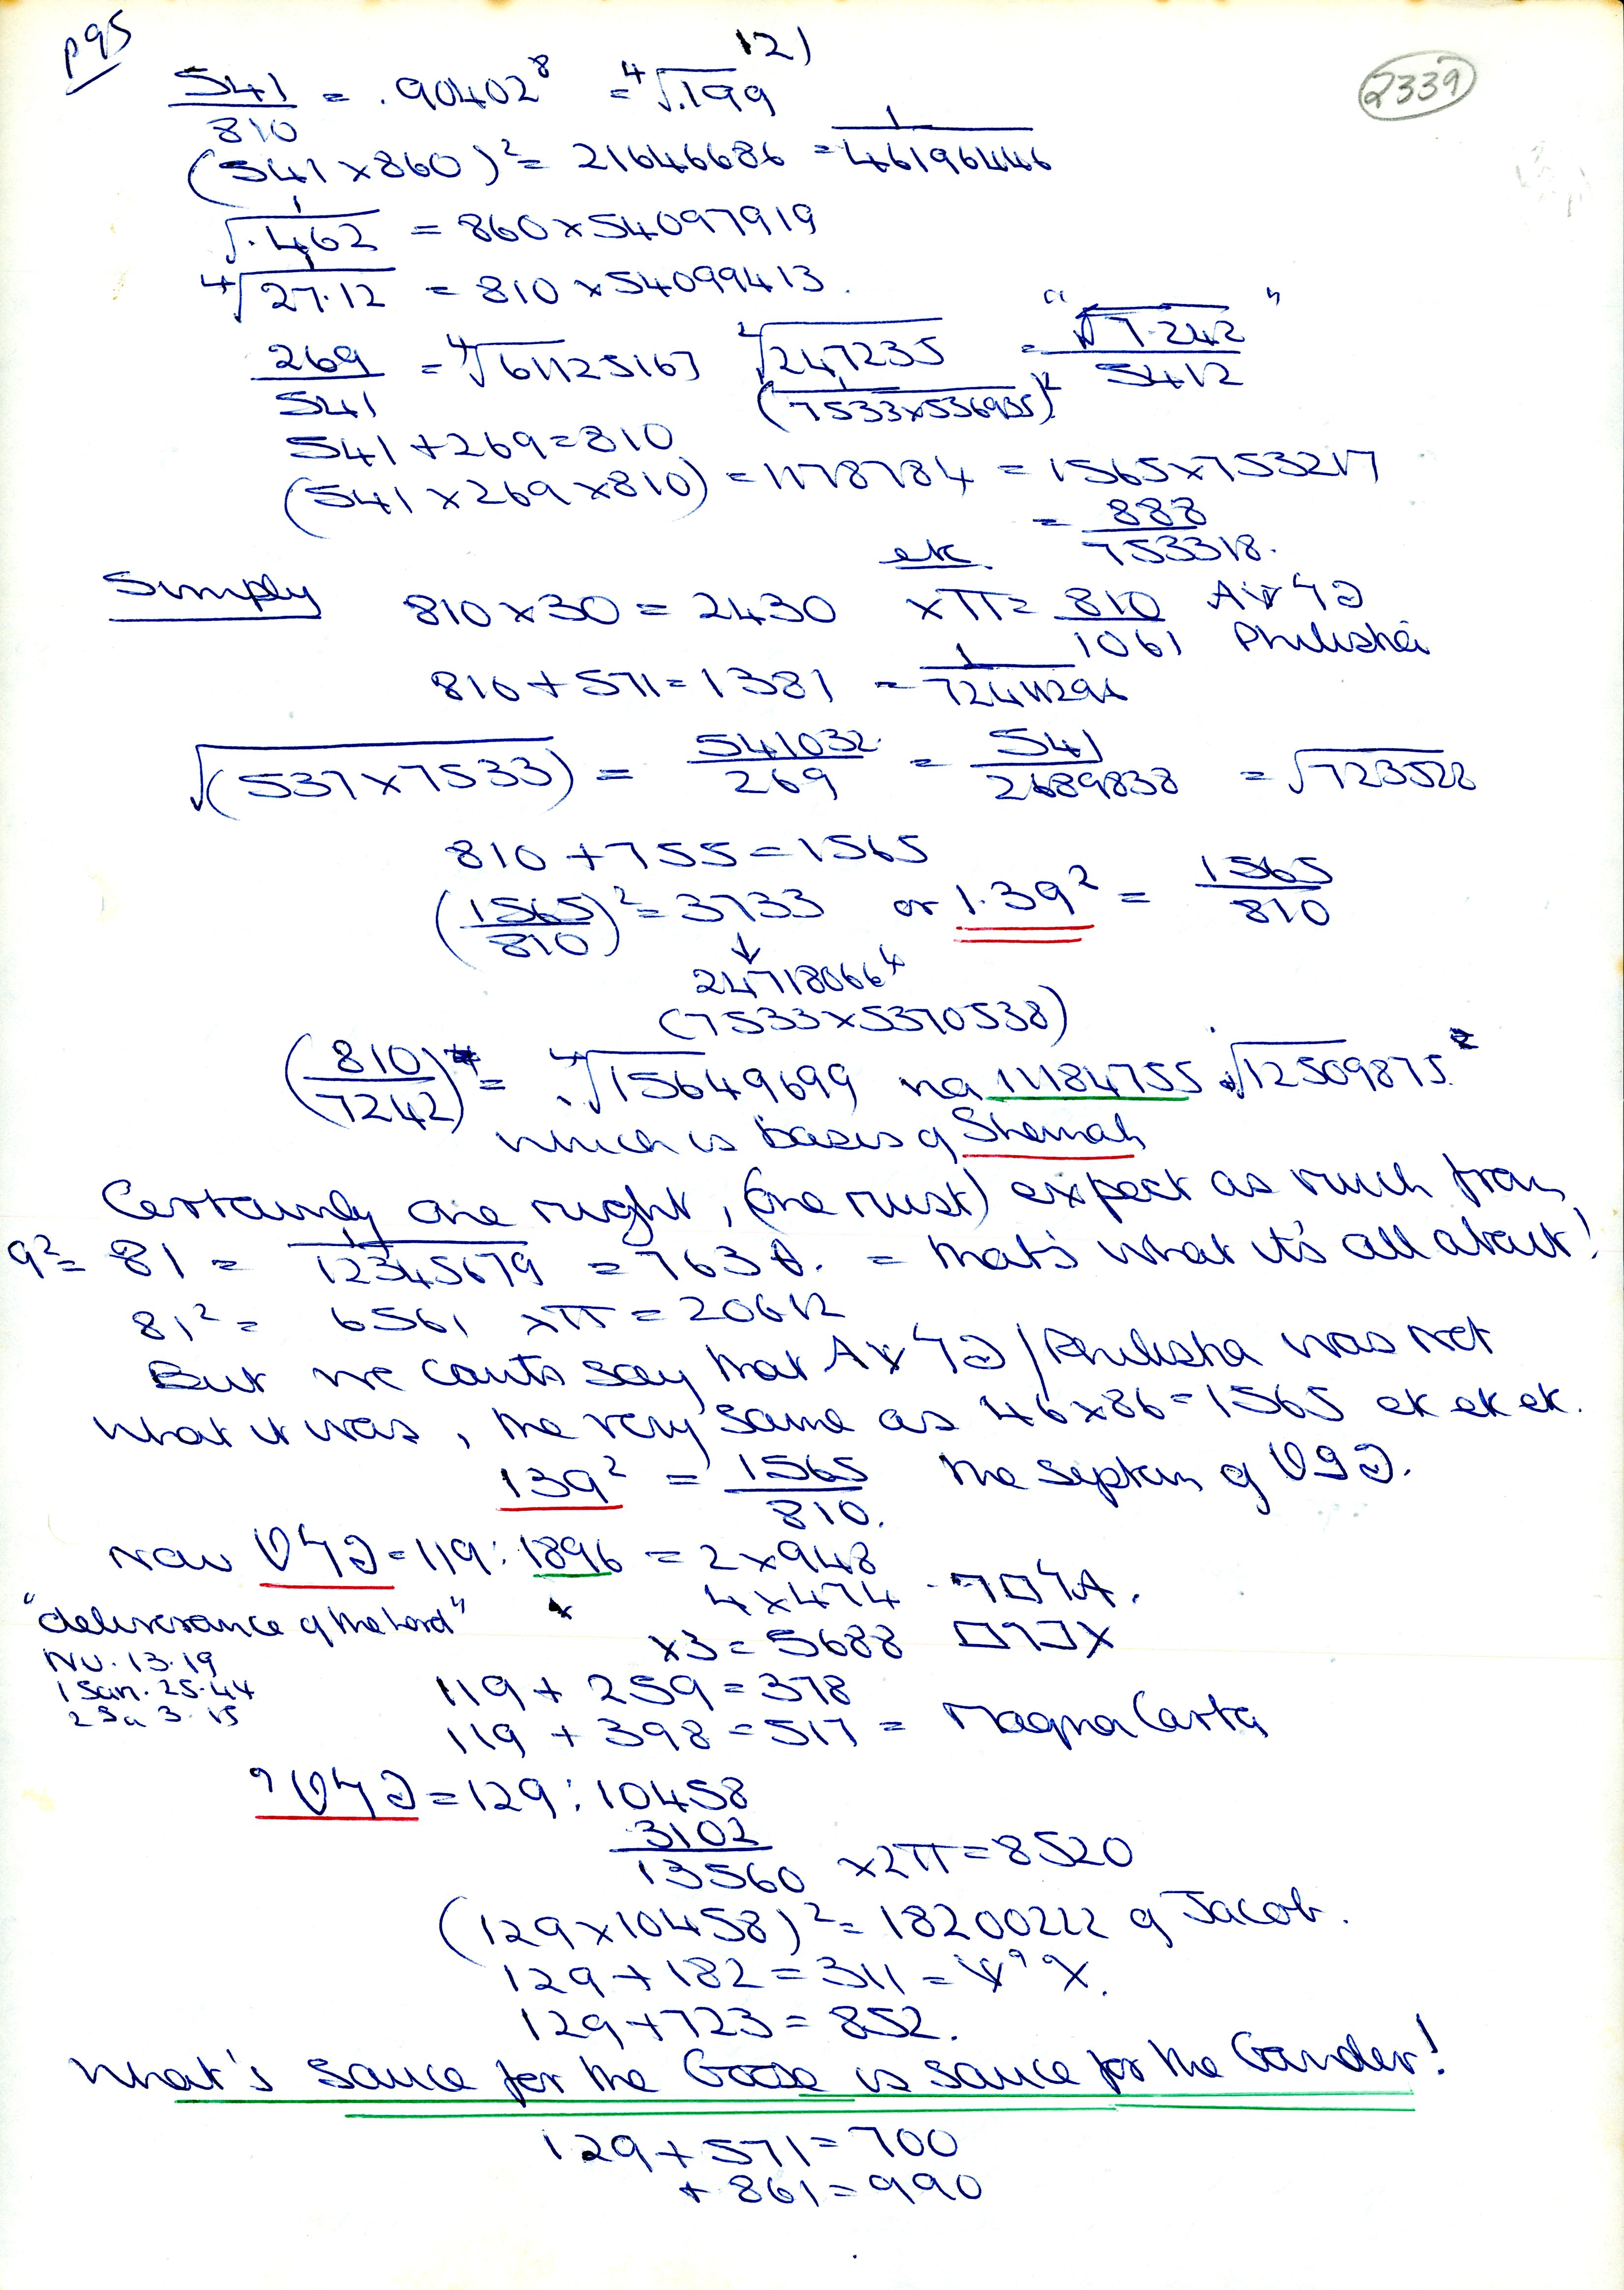 p95
12)
2339
541/810 = .90402⁸ = ⁴√.199
(541 x 860)² = 21646686 = 1/46196446
1/√.462 = 860 x 54097919
1/⁴√27.12 = 810 x 54099413.
269/541 = ⁴√61125167 ²√247235/(7533x536935)² = "√7.242/5412"
541 + 269 = 810
(541 x 269 x 810) = 1178784 = 1565 x 753217
= 888/753318.
Simply 810 x 30 = 2430 ek xπ = 810/1061
810 + 571 = 1381 = 1/
√(537 x 7533) = 541032/269 = 541/2689838 = √723528
810 + 755 = 1565
(1565/810)² = 3733 or 1.39² = 1565/810
↓
24718066⁴
(7533 x 5370538)
(810/7242)⁴ = ⁴√15649699 na 11184755 √12509875²
which is basis of Shemah
Certainly one might, (one must) expect as much from
9² = 81 = 1/12345679 = = that's what it's all about!
81² = 6561 xπ = 20612
But we can't say that was not
what it was, the very same as 46 x 86 = 1565 ek ek ek.
139² = 1565/810. the of
Now = 119 : 1896 = 2 x 948
4 x 474
"deliverance of the Lord" x3 = 5688
Nu. 13.19
1 Sam. 25.44
2 Sa 3.15
119 + 259 = 378
119 + 398 = 517 = Magna Carta
= 129 : 10458
3102
13560 x2π = 8520
(129 x 10458)² = 18200222 of Jacob.
129 + 182 = 311 =
129 + 723 = 852.
What's sauce for the Goose is sauce for the Gander!
129 + 571 = 700
+ 861 = 990